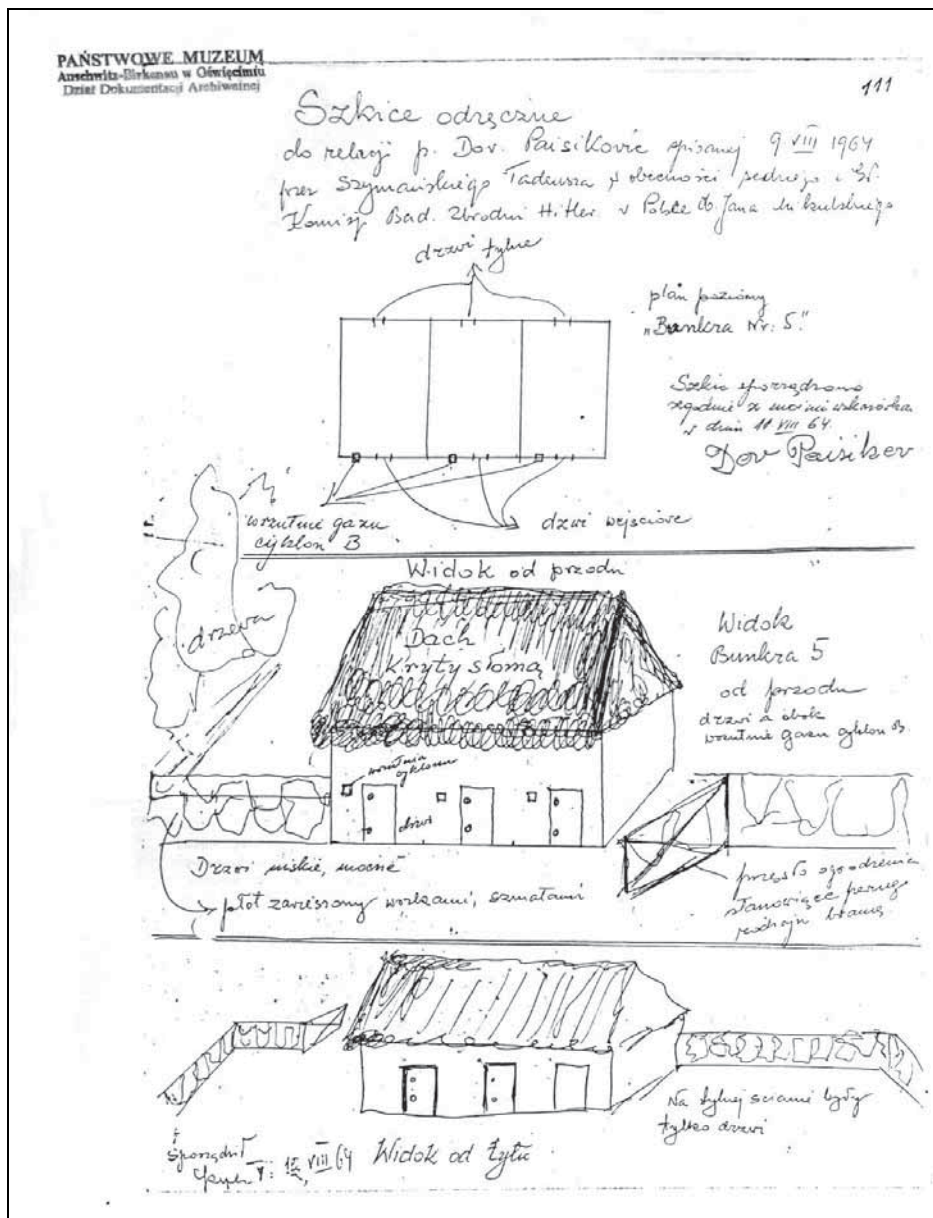 PAŃSTWOWE MUZEUM
Auschwitz-Birkenau w Oświęcimiu
Dział Dokumentacji Archiwalnej
111
Szkice odręczne
do relacji p. Dov. Paisikovic spisanej 9 VIII 1964
przez Szymańskiego Tadeusza w obecności sędziego i Gł.
Komisji Bad. Zbrodni Hitler. w Polsce Jana
drzwi tylne
plan poziomy
"Bunkra Nr: 5."
Szkic sporządzono
zgodnie z moimi wskazówka.
w dniu 11 VIII 64.
Dov Paisikov
wrzutnie gazu
cyklon B
drzwi wejściowe
Widok od przodu
drzewa
Dach
Kryty słomą
Widok
Bunkra 5
od przodu
drzwi a obok
wrzutnie gazu cyklon B.
wrzutnia
cyklonu
drzwi
Drzwi niskie, mocne
płot zawieszony workami, szmatami
przęsło ogrodzenia
stanowiące pewnego
rodzaju bramę
Na tylnej ścianie były
tylko drzwi
Sporządził
VIII 64
Widok od tyłu